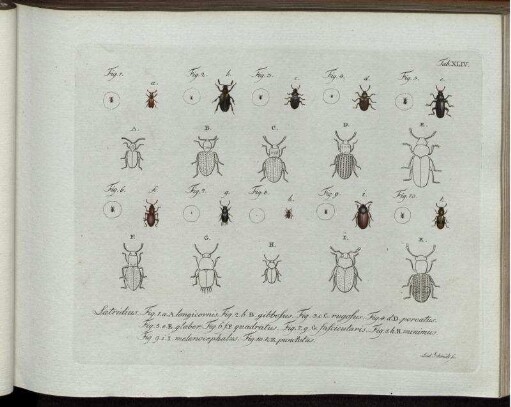 Tab. XLIV.
Fig. 1. Fig. 2. Fig. 3. Fig. 4. Fig. 5.
a. b. c. d. e.
A. B. C. D. E.
Fig. 6. Fig. 7. Fig. 8. Fig. 9. Fig. 10.
f. g. h. i. k.
F. G. H. I. K.
Latridius. Fig. 1. a. A. longicornis. Fig. 2. b. B. gibbosus. Fig. 3. c. C. rugosus. Fig. 4. d. D. porcatus.
Fig. 5. e. E. glaber. Fig. 6. f. F. quadratus. Fig. 7. g. G. fascicularis. Fig. 8. h. H. minimus.
Fig. 9. i. I. melanocephalus. Fig. 10. k. K.